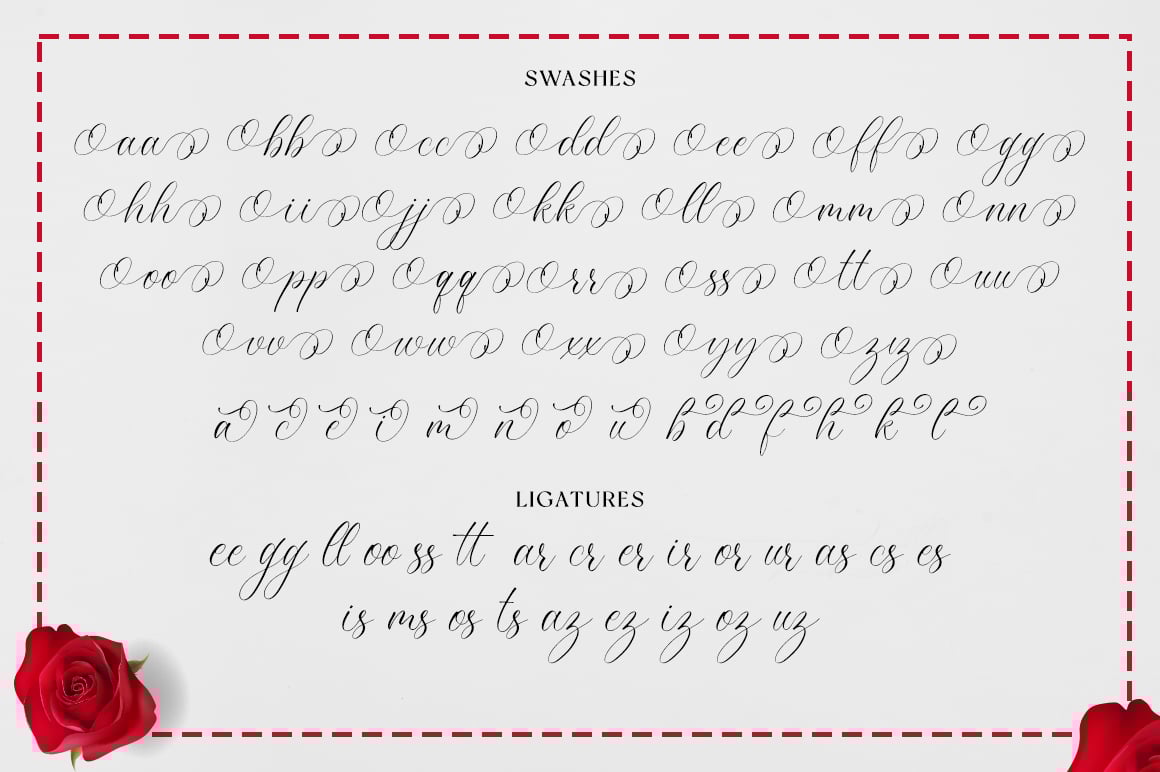 SWASHES
Oaa Obb Occ Odd Oee Off Ogg
Ohh Oii Ojj Okk Oll Omm Onn
Ooo Opp Oqq Orr Oss Ott Ouu
Ovv Oww Oxx Oyy Ozz
a c e i m n o u b d f h k l
LIGATURES
ee gg ll oo ss tt ar cr er ir or ur as cs es
is ms os ts az ez iz oz uz